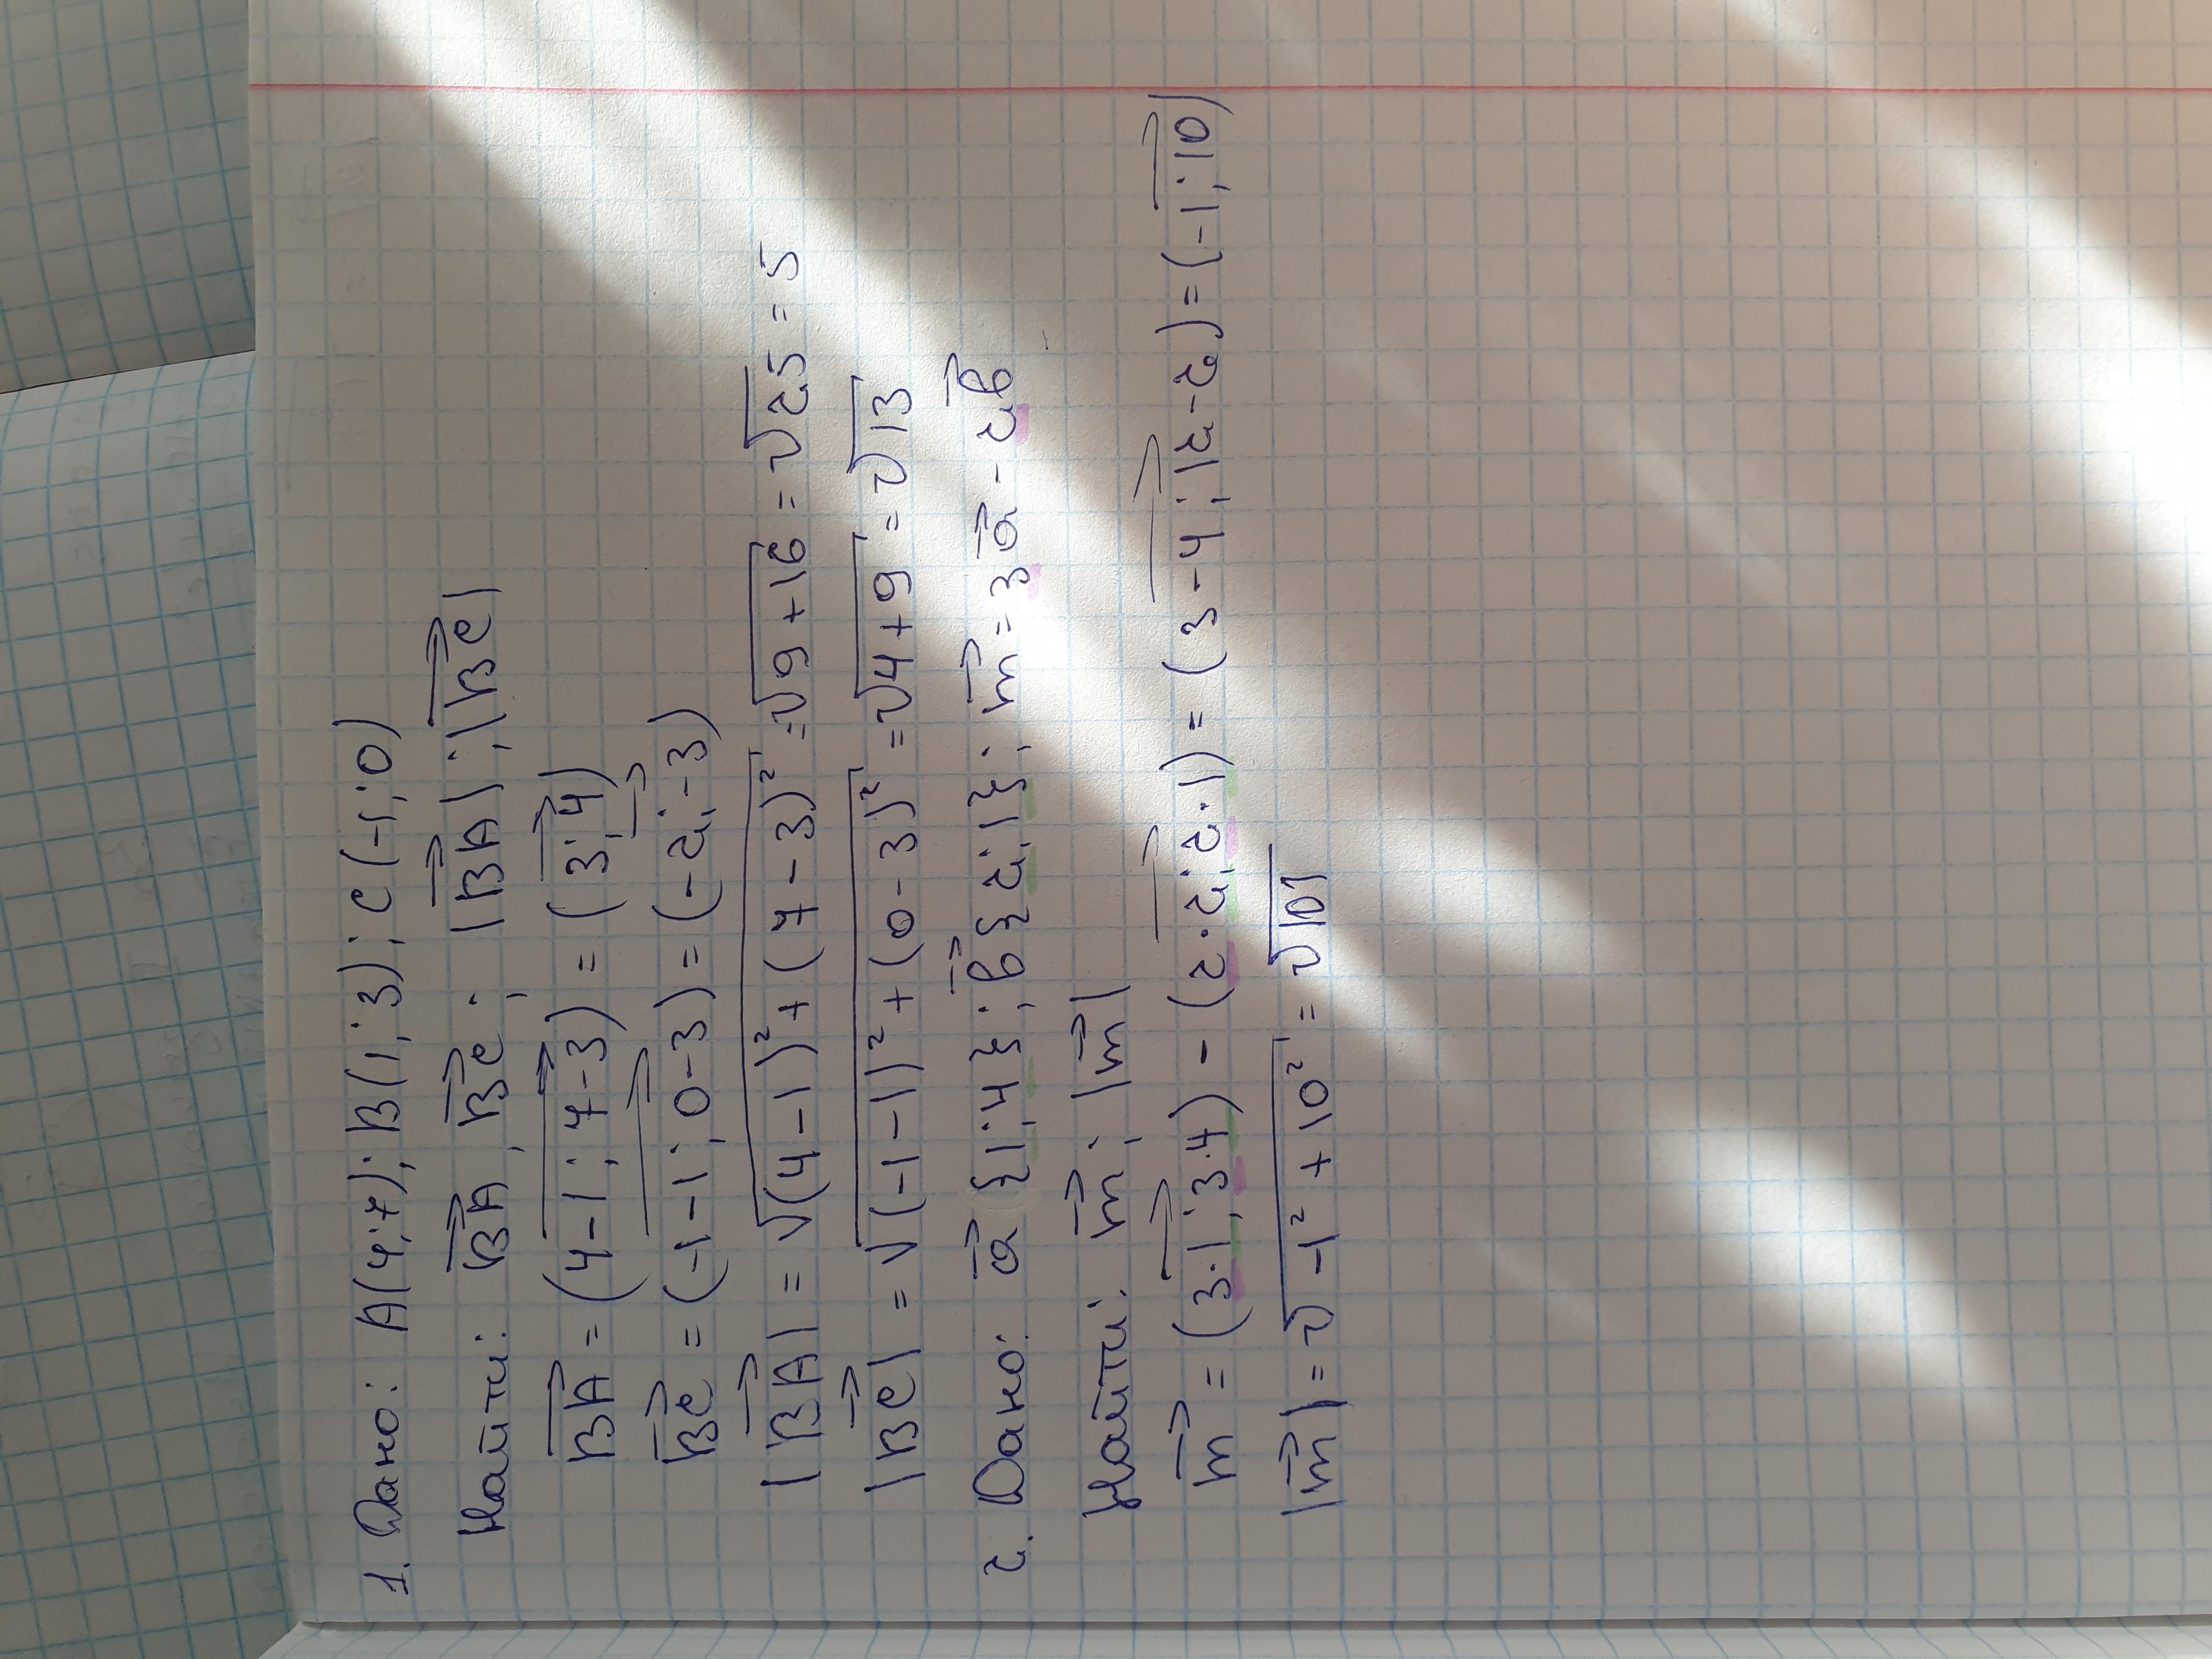 1. Дано: A(4;7); B(1;3); C(-1;0)
Найти: BA, BC; |BA|; |BC|
BA = (4-1; 7-3) = (3; 4)
BC = (-1-1; 0-3) = (-2; -3)
|BA| = √(4-1)² + (7-3)² = √9+16 = √25 = 5
|BC| = √(-1-1)² + (0-3)² = √4+9 = √13
2. Дано: a {1;4}; b{2;1}; m = 3a - 2b
Найти: m; |m|
m = (3·1; 3·4) - (2·2; 2·1) = (3-4; 12-2) = (-1; 10)
|m| = √-1² + 10² = √101